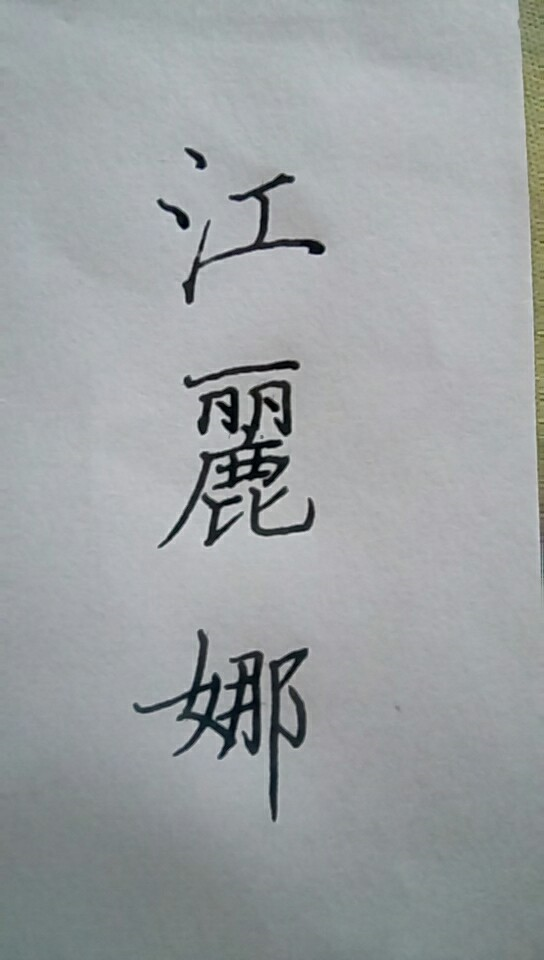 江麗娜